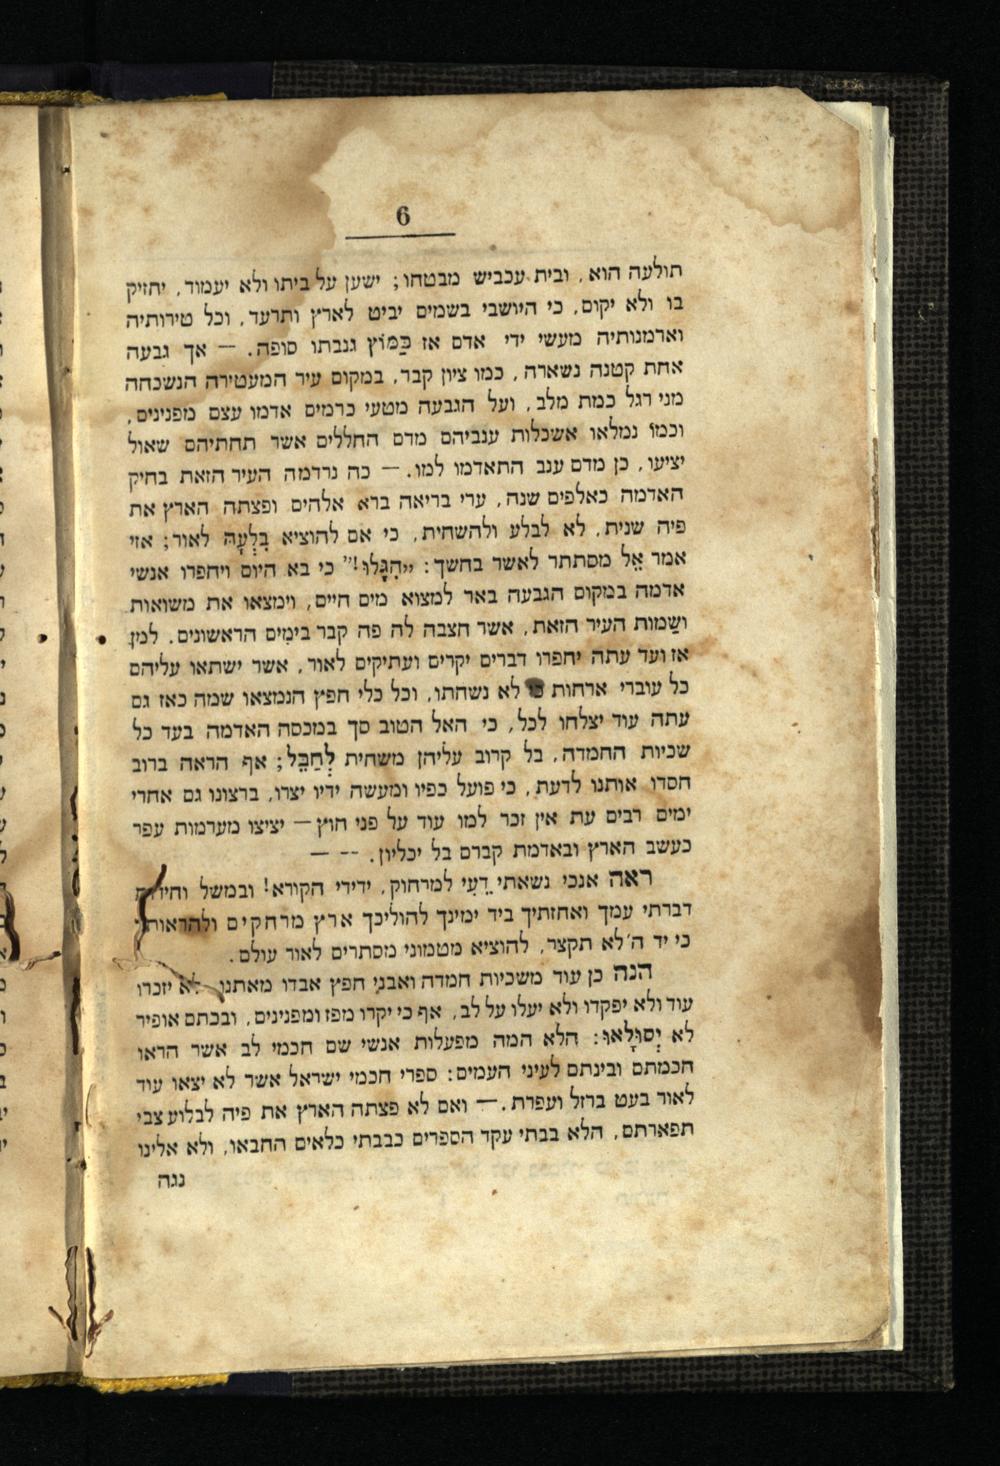 6
תולעה הוא, ובית עכביש מבטחו; ישען על ביתו ולא יעמוד, יחזיק
בו ולא יקום, כי היושבי בשמים יביט לארץ ותרעד, וכל טירותיה
וארמנותיה מעשי ידי אדם אז כַּמּוֹץ גנבתו סופה. — אך גבעה
אחת קטנה נשארה, כמו ציון קבר, במקום עיר המעטירה הנשכחה
מני רגל כמת מלב, ועל הגבעה מטעי כרמים אדמו עצם מפנינים,
וכמו נמלאו אשכלות ענביהם מדם החללים אשר תחתיהם שאול
יציעו, כן מדם ענב התאדמו למו. — כה נרדמה העיר הזאת בחיק
האדמה כאלפים שנה, ערי בריאה ברא אלהים ופצתה הארץ את
פיה שנית, לא לבלע ולהשחית, כי אם להוציא בִּלְעָהּ לאור; אזי
אמר אֵל מסתתר לאשר בחשך: „הִגָּלוּ!” כי בא היום ויחפרו אנשי
אדמה במקום הגבעה באר למצוא מים חיים, וימצאו את משואות
ושַמות העיר הזאת, אשר חצבה לה פה קבר בימים הראשונים. למין
אז ועד עתה יחפרו דברים יקרים ועתיקים לאור, אשר ישתאו עליהם
כל עוברי ארחות לא נשחתו, וכל כלי חפץ הנמצאו שמה כאז גם
עתה עוד יצלחו לכל, כי האל הטוב סך במכסה האדמה בעד כל
שכיות החמדה, בל קרוב עליהן משחית לְחַבֵּל; אף הראה ברוב
חסדו אותנו לדעת, כי פועל כפיו ומעשה ידיו יצרו, ברצונו גם אחרי
ימים רבים עת אין זכר למו עוד על פני חוץ — יציצו מערמות עפר
כעשב הארץ ובאדמת קברם בל יכליון. -- —
ראה אנכי נשאתי דֵעִי למרחוק, ידידי הקורא! ובמשל וחידות
דברתי עמך ואחזתיך ביד ימינך להוליכך ארץ מרחקים ולהראותך
כי יד ה׳ לא תקצר, להוציא מטמוני מסתרים לאור עולם.
הנה כן עוד משכיות חמדה ואבני חפץ אבדו מאתנו לא יזכרו
עוד ולא יפקדו ולא יעלו על לב, אף כי יקרו מפז ומפנינים, ובכתם אופיר
לא יְסוּלָאוּ: הלא המה מפעלות אנשי שם חכמי לב אשר הראו
חכמתם ובינתם לעיני העמים: ספרי חכמי ישראל אשר לא יצאו עוד
לאור בעט ברזל ועפרת. — ואם לא פצתה הארץ את פיה לבלוע צבי
תפארתם, הלא בבתי עקד הספרים כבבתי כלאים החבאו, ולא אלינו
נגה